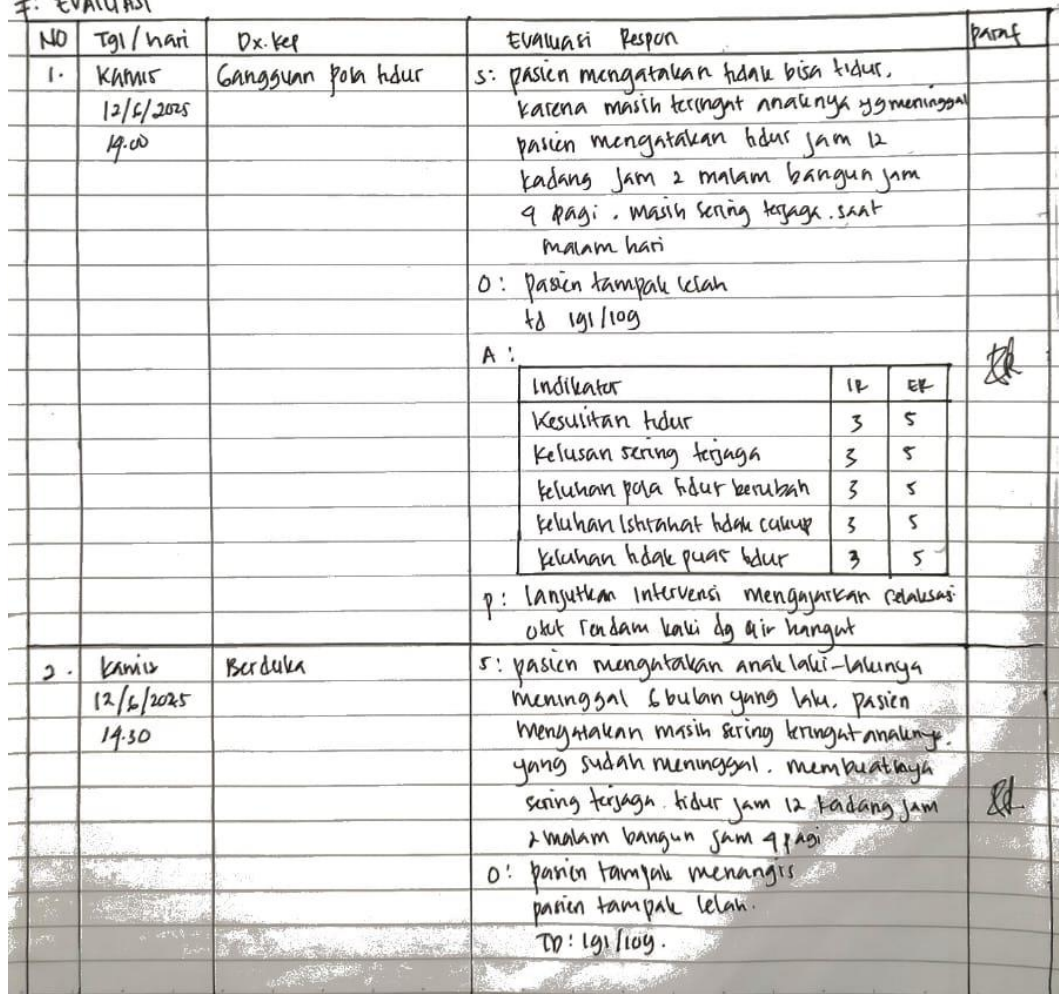 F. EVALUASI
NO Tgl / hari Dx. kep Evaluasi Respon paraf
1. Kamis Gangguan pola tidur S: pasien mengatakan tidak bisa tidur,
12/6/2025 karena masih teringat anaknya yg meninggal
14.00 pasien mengatakan tidur jam 12
kadang jam 2 malam bangun jam
4 pagi. masih sering terjaga saat
malam hari
O: pasien tampak lelah
td 191/109
A :
Indikator IR ER
Kesulitan tidur 3 5
Kelusan sering terjaga 3 5
keluhan pola tidur berubah 3 5
keluhan istirahat tidak cukup 3 5
keluhan tidak puas tidur 3 5
p: lanjutkan intervensi mengajarkan relaksasi
otot rendam kaki dg air hangat
2. kamis Berduka S: pasien mengatakan anak laki-lakinya
12/6/2025 meninggal 6 bulan yang lalu. pasien
14.30 mengatakan masih sering teringat anaknya
yang sudah meninggal. membuatnya
sering terjaga. tidur jam 12 kadang jam
2 malam bangun jam 4 pagi
O: pasien tampak menangis
pasien tampak lelah.
TD: 191/109.